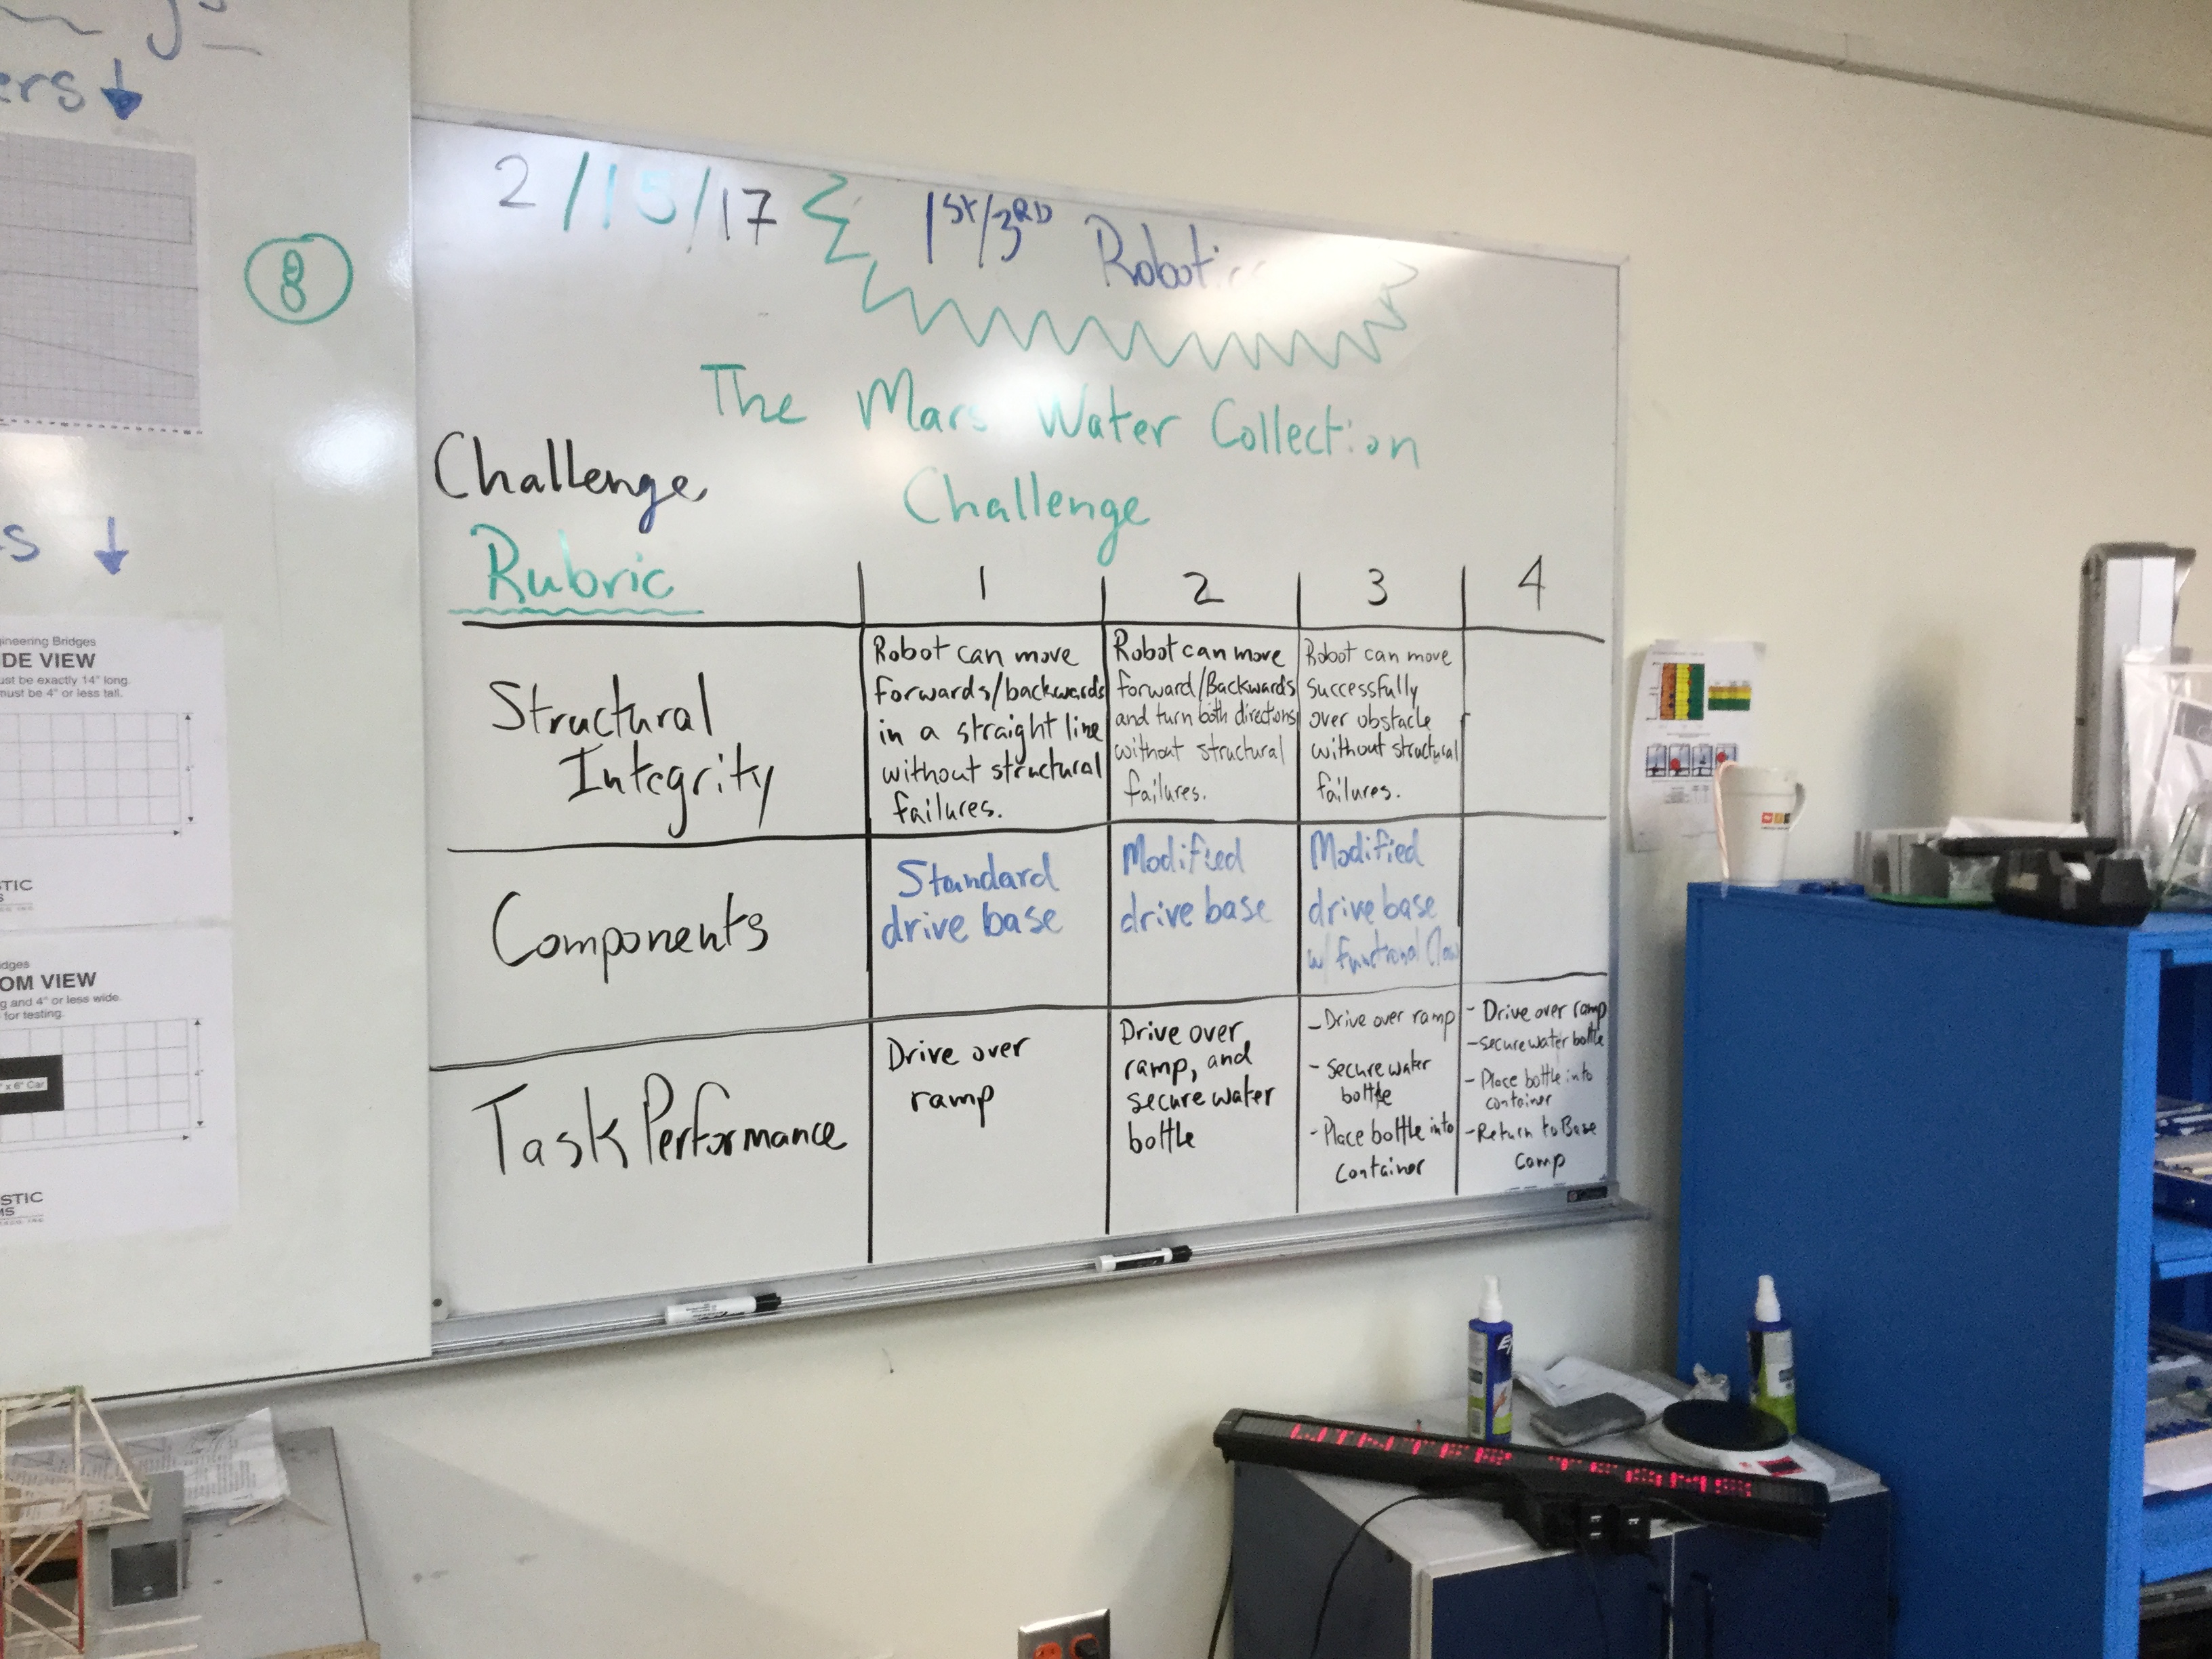 ers ↓
s ↓
8
2/15/17
1ST/3RD Robotics
The Mars Water Collection
Challenge
Challenge
Rubric
1
2
3
4
Structural
Integrity
Robot can move
forwards/backwards
in a straight line
without structural
failures.
Robot can move
forward/Backwards
and turn both directions
without structural
failures.
Robot can move
successfully
over obstacle
without structural
failures.
Components
Standard
drive base
Modified
drive base
Modified
drive base
w/ functional Claw
Task Performance
Drive over
ramp
Drive over
ramp, and
secure water
bottle
- Drive over ramp
- Secure water
bottle
- Place bottle into
container
- Drive over ramp
- secure water bottle
- Place bottle into
container
- Return to Base
camp
gineering Bridges
DE VIEW
ust be exactly 14" long.
must be 4" or less tall.
TIC
S
dges
OM VIEW
g and 4" or less wide.
for testing.
x 6" Car
4"
STIC
MS
WINTER